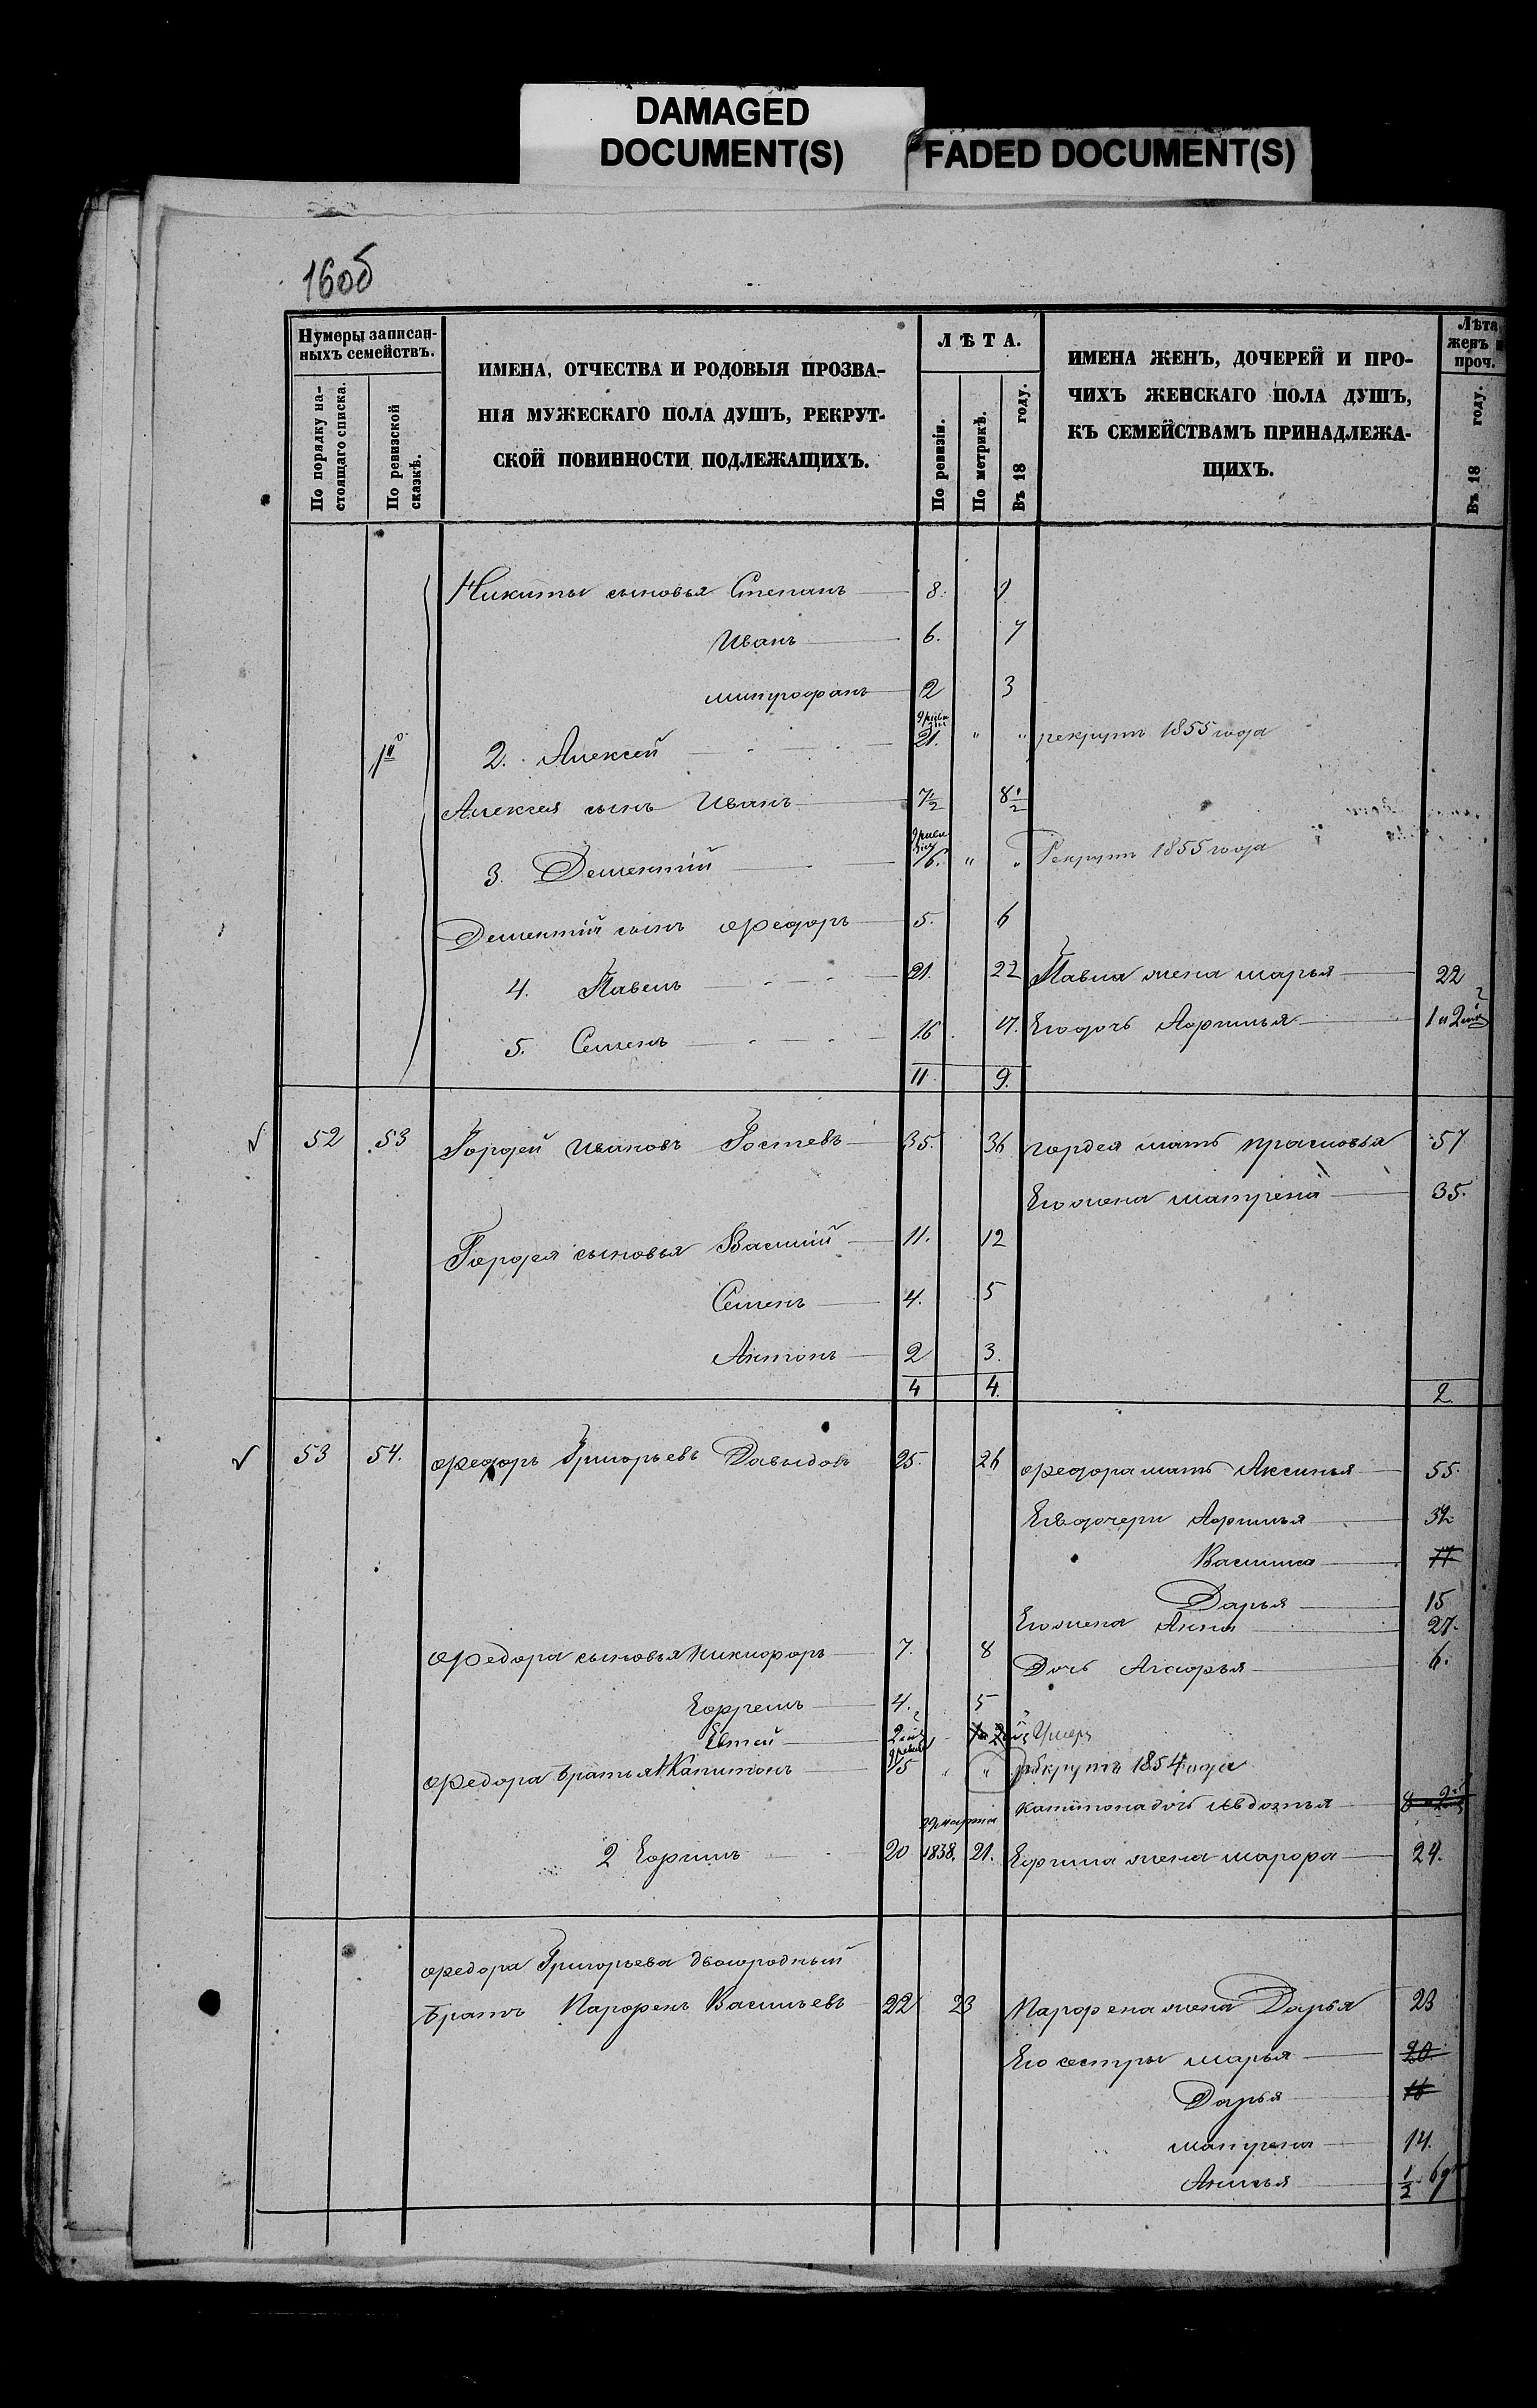 DAMAGED
DOCUMENT(S)
FADED DOCUMENT(S)
160об
Нумеры записан-
ныхъ семействъ.
По порядку на-
стоящаго списка.
По ревизской
сказкѣ.
ИМЕНА, ОТЧЕСТВА И РОДОВЫЯ ПРОЗВА-
НІЯ МУЖЕСКАГО ПОЛА ДУШЪ, РЕКРУТ-
СКОЙ ПОВИННОСТИ ПОДЛЕЖАЩИХЪ.
ЛѢТА.
По ревизіи.
По метрикѣ.
Въ 18 году.
ИМЕНА ЖЕНЪ, ДОЧЕРЕЙ И ПРО-
ЧИХЪ ЖЕНСКАГО ПОЛА ДУШЪ,
КЪ СЕМЕЙСТВАМЪ ПРИНАДЛЕЖА-
ЩИХЪ.
Лѣта
женъ и
проч.
Въ 18 году.
Никиты сыновья Степанъ 8. 9
Иванъ 6. 7
митрофанъ 2 3
2. Алексей 21. " " рекрутъ 1855 года
Алексея сынъ Иванъ 7 1/2 8 1/2
3. Дементій 16. " " Рекрутъ 1855 года
Дементія сынъ Федоръ 5. 6
4. Павелъ 21. 22 Павла жена марья 22
5. Семенъ 16. 17. Его дочь Афимья
11 9.
52 53 Гордей Ивановъ Гостевъ 35. 36 гордея мать прасковья 57
Его жена матрена 35.
Гордея сыновья Василій 11. 12
Семенъ 4. 5
Антонъ 2 3.
4 4. 2.
53 54. Федоръ Григорьевъ Давыдовъ 25. 26 Федора мать Аксинья 55.
Ея дочери Афимья
Василиса 17
Дарья 15
Его жена Анна 27.
Федора сыновья Никифоръ 7. 8 Дочь 6.
Ефремъ 4. 5
Умеръ
Федора братья 1 Капитонъ 15 " " рекрутъ 1854 года
Капитона дочь Авдотья
2 Ефимъ 20 1838. 21. Ефима жена марфа 24.
Федора Григорьева двоюродный
братъ Парфенъ Васильевъ 22 23 Парфена жена Дарья 23
Его сестры марья 20.
Дарья 18
матрена 14.
Анисья 1/2